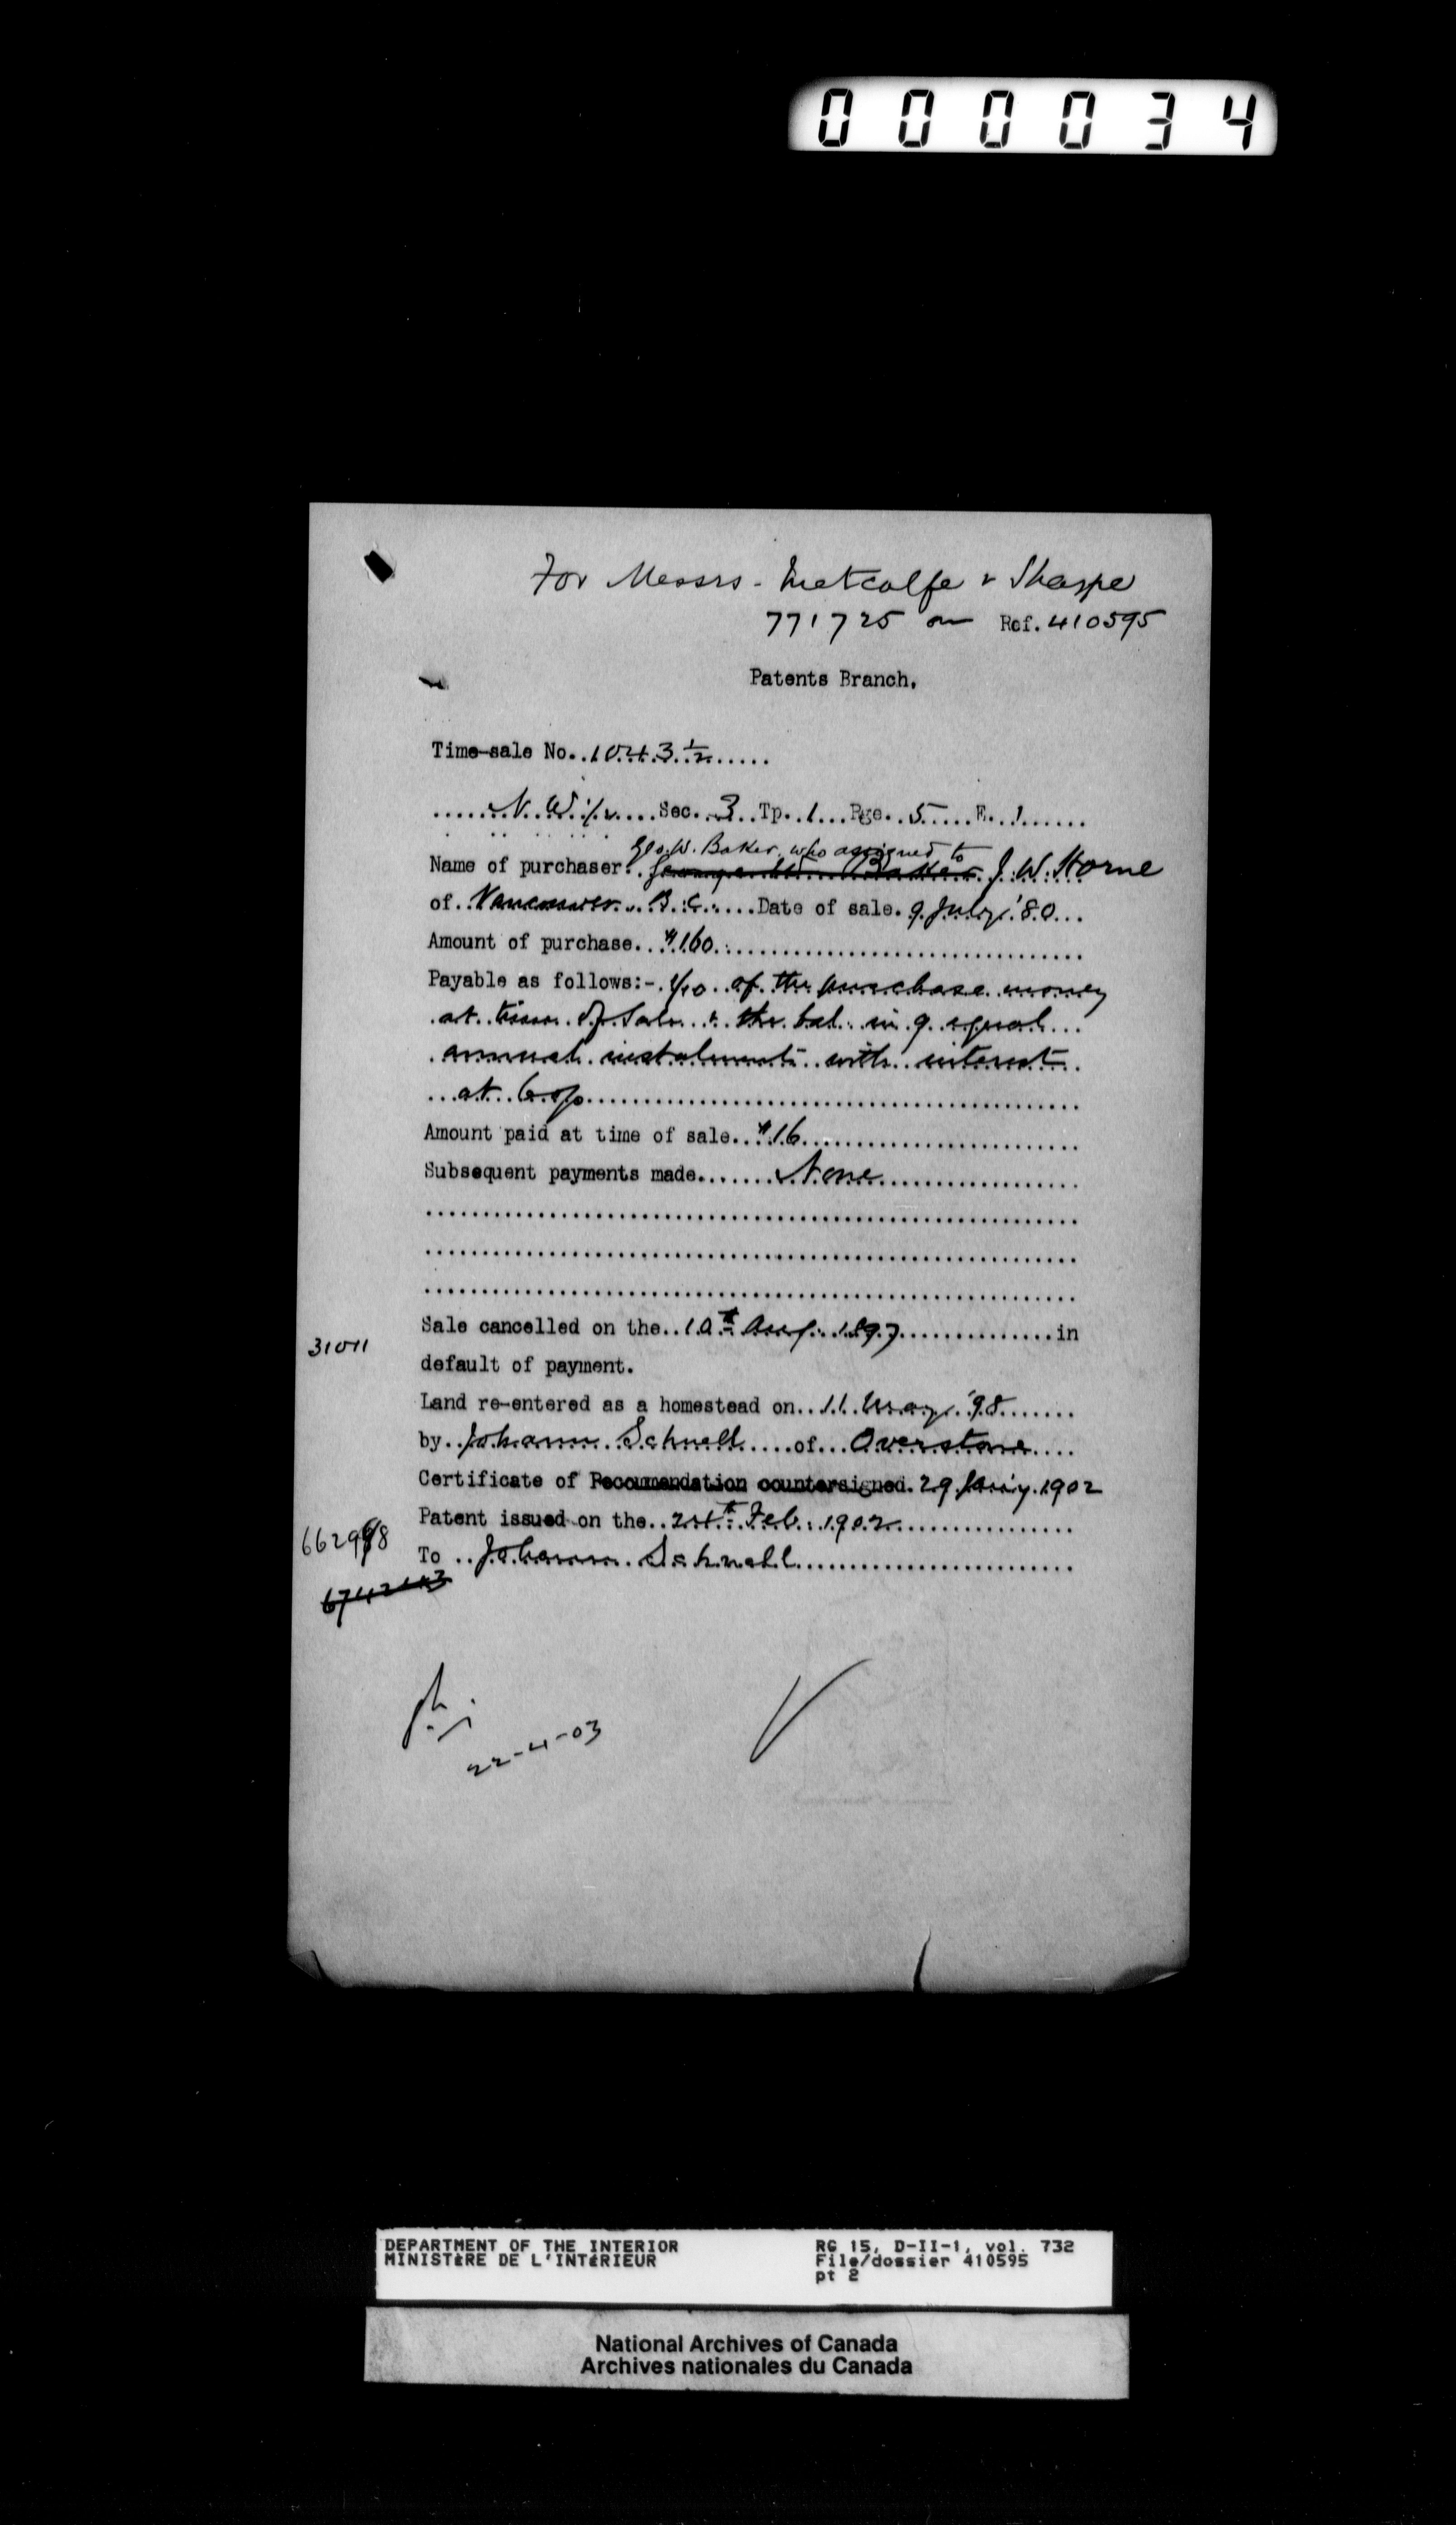 000034
For Messrs. Metcalfe & Sharpe
771725 on Ref. 410595
Patents Branch.
Time-sale No. 1043½
N.W.¼ Sec. 3 Tp. 1 Rge. 5 E. 1
Geo. W. Baker, who assigned to
Name of purchaser. George W. Baker J. W. Horne
of Vancouver B.C. Date of sale. 9 July '80
Amount of purchase. $160.
Payable as follows:- 1/10 of the purchase money
at time of Sale & the bal. in 9 equal
annual instalments with interest
at 6 o/o
Amount paid at time of sale. $16
Subsequent payments made. None
31011
Sale cancelled on the 10th Aug. 1897 in
default of payment.
Land re-entered as a homestead on 11 May '98
by Johann Schnell of Overstone
Certificate of Recommendation countersigned. 29 Jan'y. 1902
Patent issued on the 24th Feb. 1902
662998
To Johann Schnell
22-4-03
DEPARTMENT OF THE INTERIOR
MINISTèRE DE L'INTéRIEUR
RG 15, D-II-1, vol. 732
File/dossier 410595
pt 2
National Archives of Canada
Archives nationales du Canada